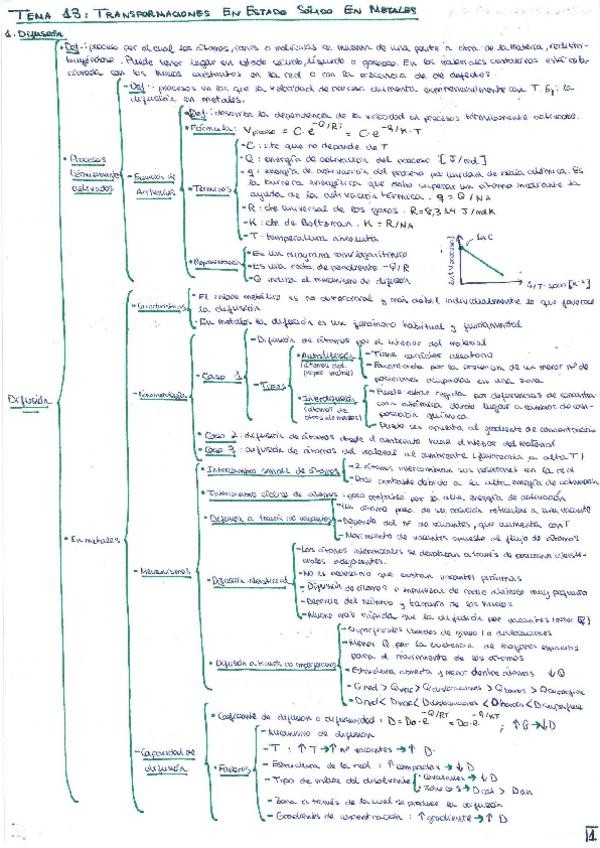 TEMA 13: TRANSFORMACIONES EN ESTADO SÓLIDO EN METALES
1. Difusión
Def: proceso por el cual los átomos, iones o moléculas se mueven de una parte a otra de la materia, redistri-
buyéndose. Puede tener lugar en estado sólido, líquido o gaseoso. En los materiales cristalinos está rela-
cionada con los huecos existentes en la red o con la existencia de defectos.
- Def: procesos en los que la velocidad de proceso aumenta exponencialmente con T. Ej: la
difusión en metales.
Def: describe la dependencia de la velocidad en procesos térmicamente activados.
Fórmula: Vproceso = C·e^-Q/RT = C·e^-q/K·T
Procesos
térmicamente
activados
Ecuación de
Arrhenius
Términos
- C: cte que no depende de T
- Q: energía de activación del proceso [J/mol]
- q: energía de activación del proceso por unidad de escala atómica. Es
la barrera energética que debe superar un átomo mediante la
ayuda de la activación térmica. q = Q/NA
- R: cte universal de los gases. R = 8,314 J/molK
- K: cte de Boltzman. K = R/NA
- T: temperatura absoluta
Representación
- Es un diagrama semilogarítmico
- Es una recta de pendiente -Q/R
- Q indica el mecanismo de difusión
ln C
ln(Vproceso)
Difusión
En metales
Características
- El enlace metálico es no direccional y más débil individualmente lo que favorece
la difusión
- En metales la difusión es un fenómeno habitual y fundamental
Fenomenología
Caso 1
- Difusión de átomos por el interior del material
- Tipos
Autodifusión
(átomos del
propio metal)
- Tiene carácter aleatorio
- Favorecida por la presencia de un menor nº de
posiciones ocupadas en una zona
Interdifusión
(átomos de
otros elementos)
- Puede estar regida por diferencias de concentra-
ción atómica dando lugar a cambios de com-
posición química
- Puede ser opuesta al gradiente de concentración
Caso 2: difusión de átomos desde el ambiente hacia el interior del material
Caso 3: difusión de átomos del material al ambiente (favorecida a alta T)
Mecanismos
Intercambio simple de átomos
- 2 átomos intercambian sus posiciones en la red
- Poco probable debido a la alta energía de activación
Intercambio cíclico de átomos: poco probable por la alta energía de activación
Difusión a través de vacantes
- Un átomo pasa de su posición reticular a una vacante
- Depende del nº de vacantes, que aumenta con T
- Movimiento de vacantes opuesto al flujo de átomos
Difusión intersticial
- Los átomos intersticiales se desplazan a través de posiciones intersti-
ciales adyacentes.
- No es necesario que existan vacantes próximas
- Difusión de átomos o impurezas de radio atómico muy pequeño
- Depende del número y tamaño de los huecos
- Mucho más rápida que la difusión por vacantes (menor Q)
Difusión a través de imperfecciones
- Superficiales (bordes de grano) o dislocaciones
- Menor Q por la existencia de mayores espacios
para el movimiento de los átomos
- Estructura abierta y menor densidad atómica ↓Q
- Qred > Qvac > Qdislocaciones > Qbordes > Qsuperficie
- Dred < Dvac < Ddislocaciones < Dbordes < Dsuperficie
Capacidad de
difusión
Coeficiente de difusión o difusividad: D = D0·e^-Q/RT = D0·e^-q/KT ; ↑Q → ↓D
Factores
- Mecanismo de difusión
- T: ↑T → ↑nº vacantes → ↑D
- Estructura de la red: ↑compactas → ↓D
- Tipo de enlace del disolvente
covalentes → ↓D
iónicos → Dcat > Dan
- Zona a través de la cual se produce la difusión
- Gradientes de concentración: ↑gradiente → ↑D
1